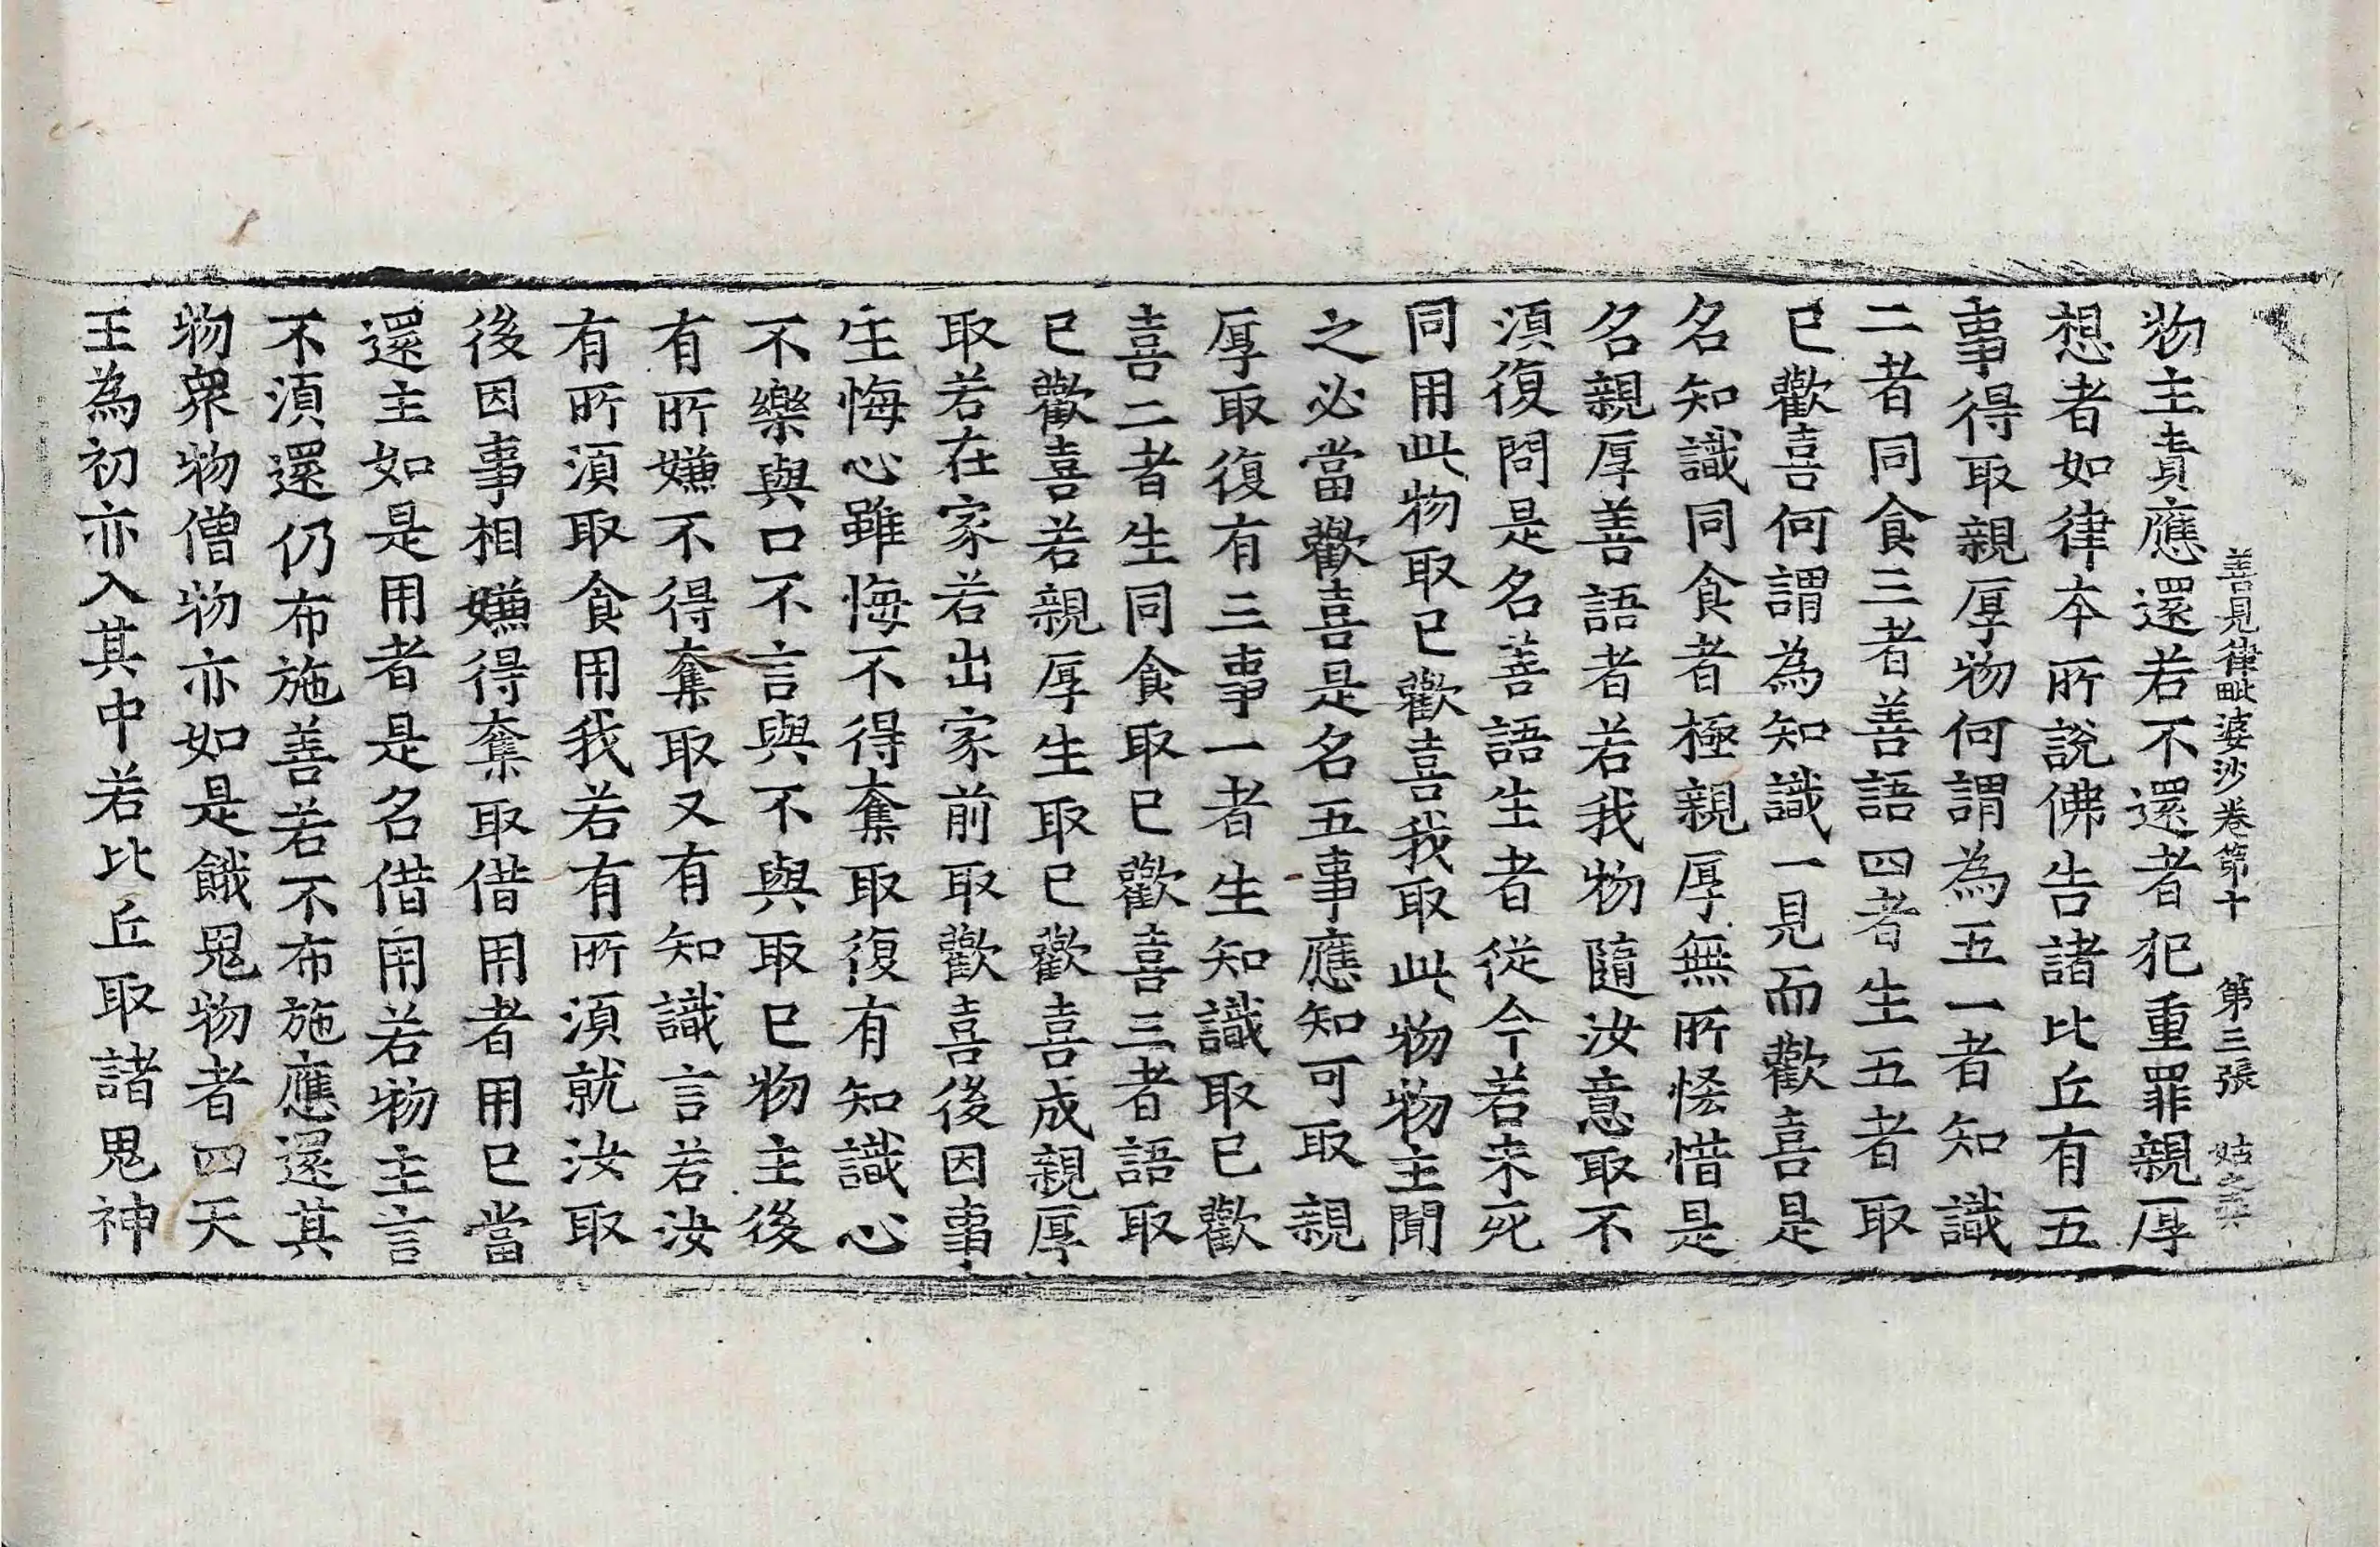 善見律毗婆沙卷第十　第三張　姑
物主責應還若不還者犯重罪親厚
想者如律本所說佛告諸比丘有五
事得取親厚物何謂為五一者知識
二者同食三者善語四者生五者取
已歡喜何謂為知識一見而歡喜是
名知識同食者極親厚無所恡惜是
名親厚善語者若我物隨汝意取不
須復問是名善語生者從今若未死
同用此物取已歡喜我取此物物主聞
之必當歡喜是名五事應知可取親
厚取復有三事一者生知識取已歡
喜二者生同食取已歡喜三者語取
已歡喜若親厚生取已歡喜成親厚
取若在家若出家前取歡喜後因事
生悔心雖悔不得奪取復有知識心
不樂與口不言與不與取已物主後
有所嫌不得奪取又有知識言若汝
有所須取食用我若有所須就汝取
後因事相嫌得奪取借用者用已當
還主如是用者是名借用若物主言
不須還仍布施善若不布施應還其
物衆物僧物亦如是餓鬼物者四天
王為初亦入其中若比丘取諸鬼神